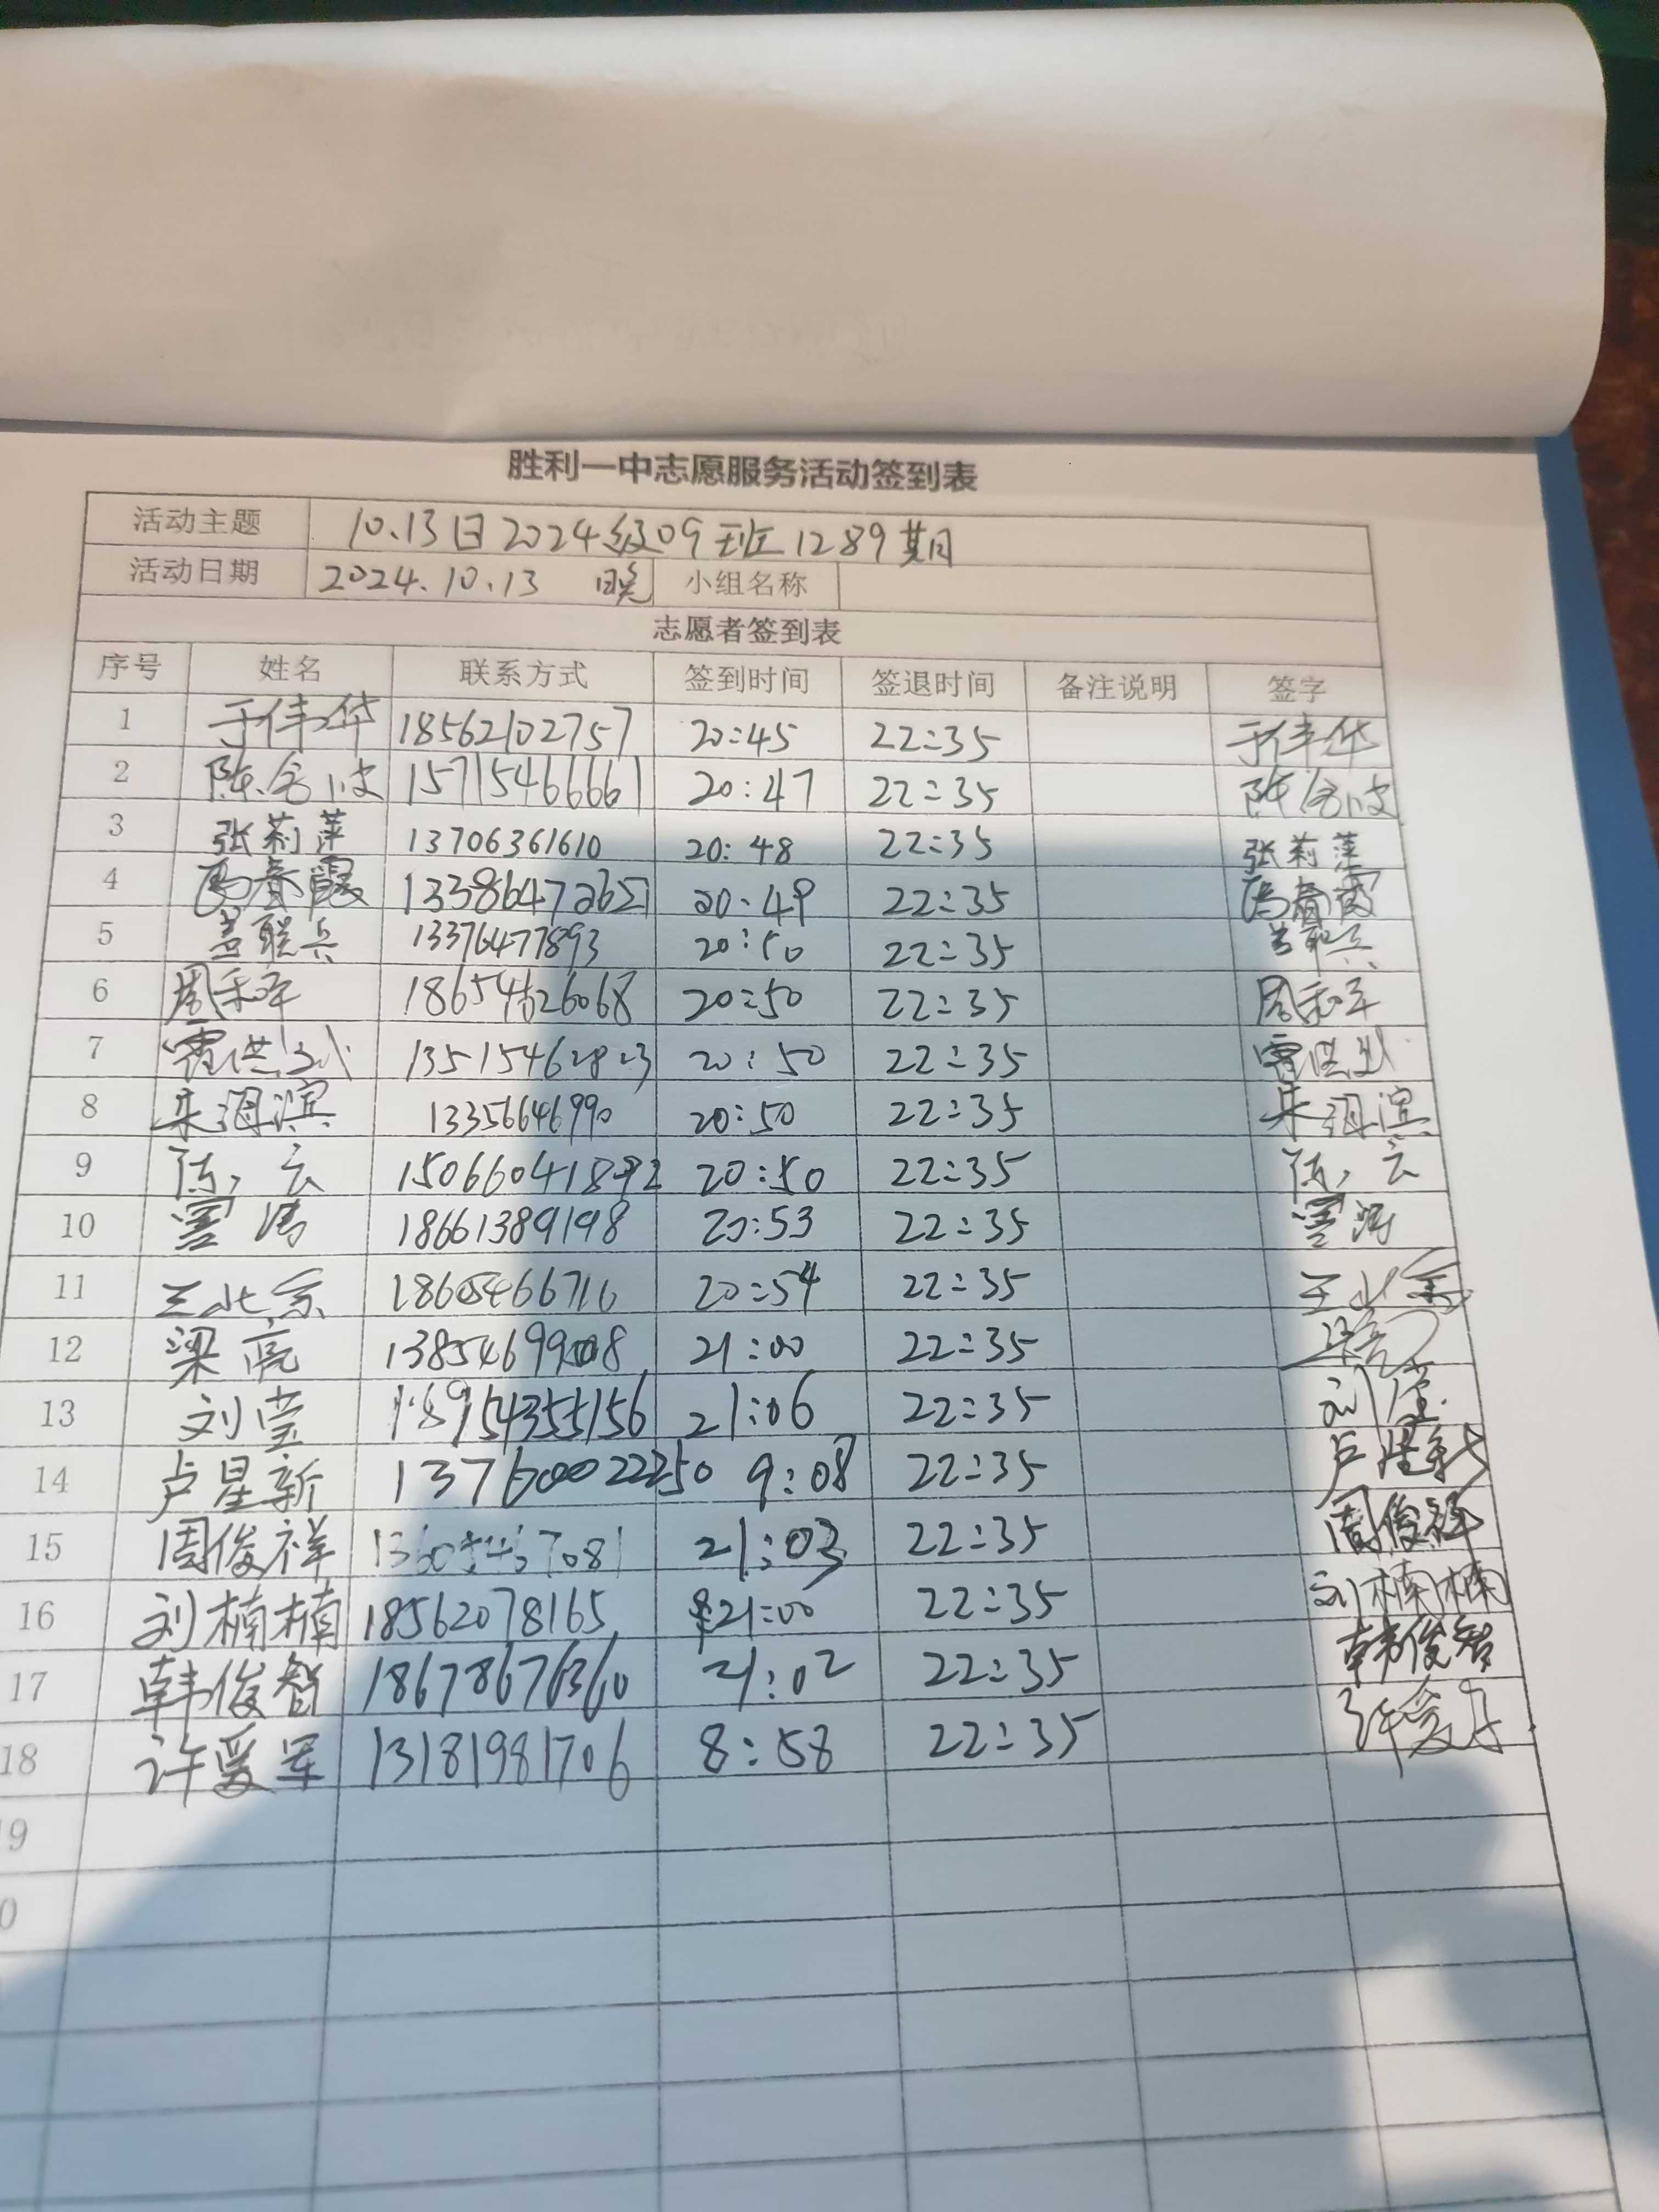 胜利一中志愿服务活动签到表
活动主题 10.13日2024级09班1289期
活动日期 2024.10.13 晚 小组名称
志愿者签到表
序号 姓名 联系方式 签到时间 签退时间 备注说明 签字
1 于伟华 18562102757 20:45 22:35 于伟华
2 15715466661 20:47 22:35
3 张莉萍 13706361610 20:48 22:35 张莉萍
4 冯春霞 20:49 22:35 冯春霞
5 盖联兵 13376477893 20:50 22:35 盖联兵
6 18654626068 20:50 22:35
7 13515462823 20:50 22:35
8 朱润滨 13356646990 20:50 22:35 朱润滨
9 陈云 20:50 22:35 陈云
10 18661389198 20:53 22:35
11 王北京 18605466716 20:54 22:35
12 梁亮 21:00 22:35 梁亮
13 刘莹 18954355156 21:06 22:35 刘莹
14 卢星新 9:08 22:35 卢星新
15 周俊祥 13605467081 21:03 22:35 周俊祥
16 刘楠楠 18562078165 21:00 22:35 刘楠楠
17 韩俊智 18678676360 21:02 22:35 韩俊智
18 许爱军 13181981706 8:58 22:35 许爱军
9
0